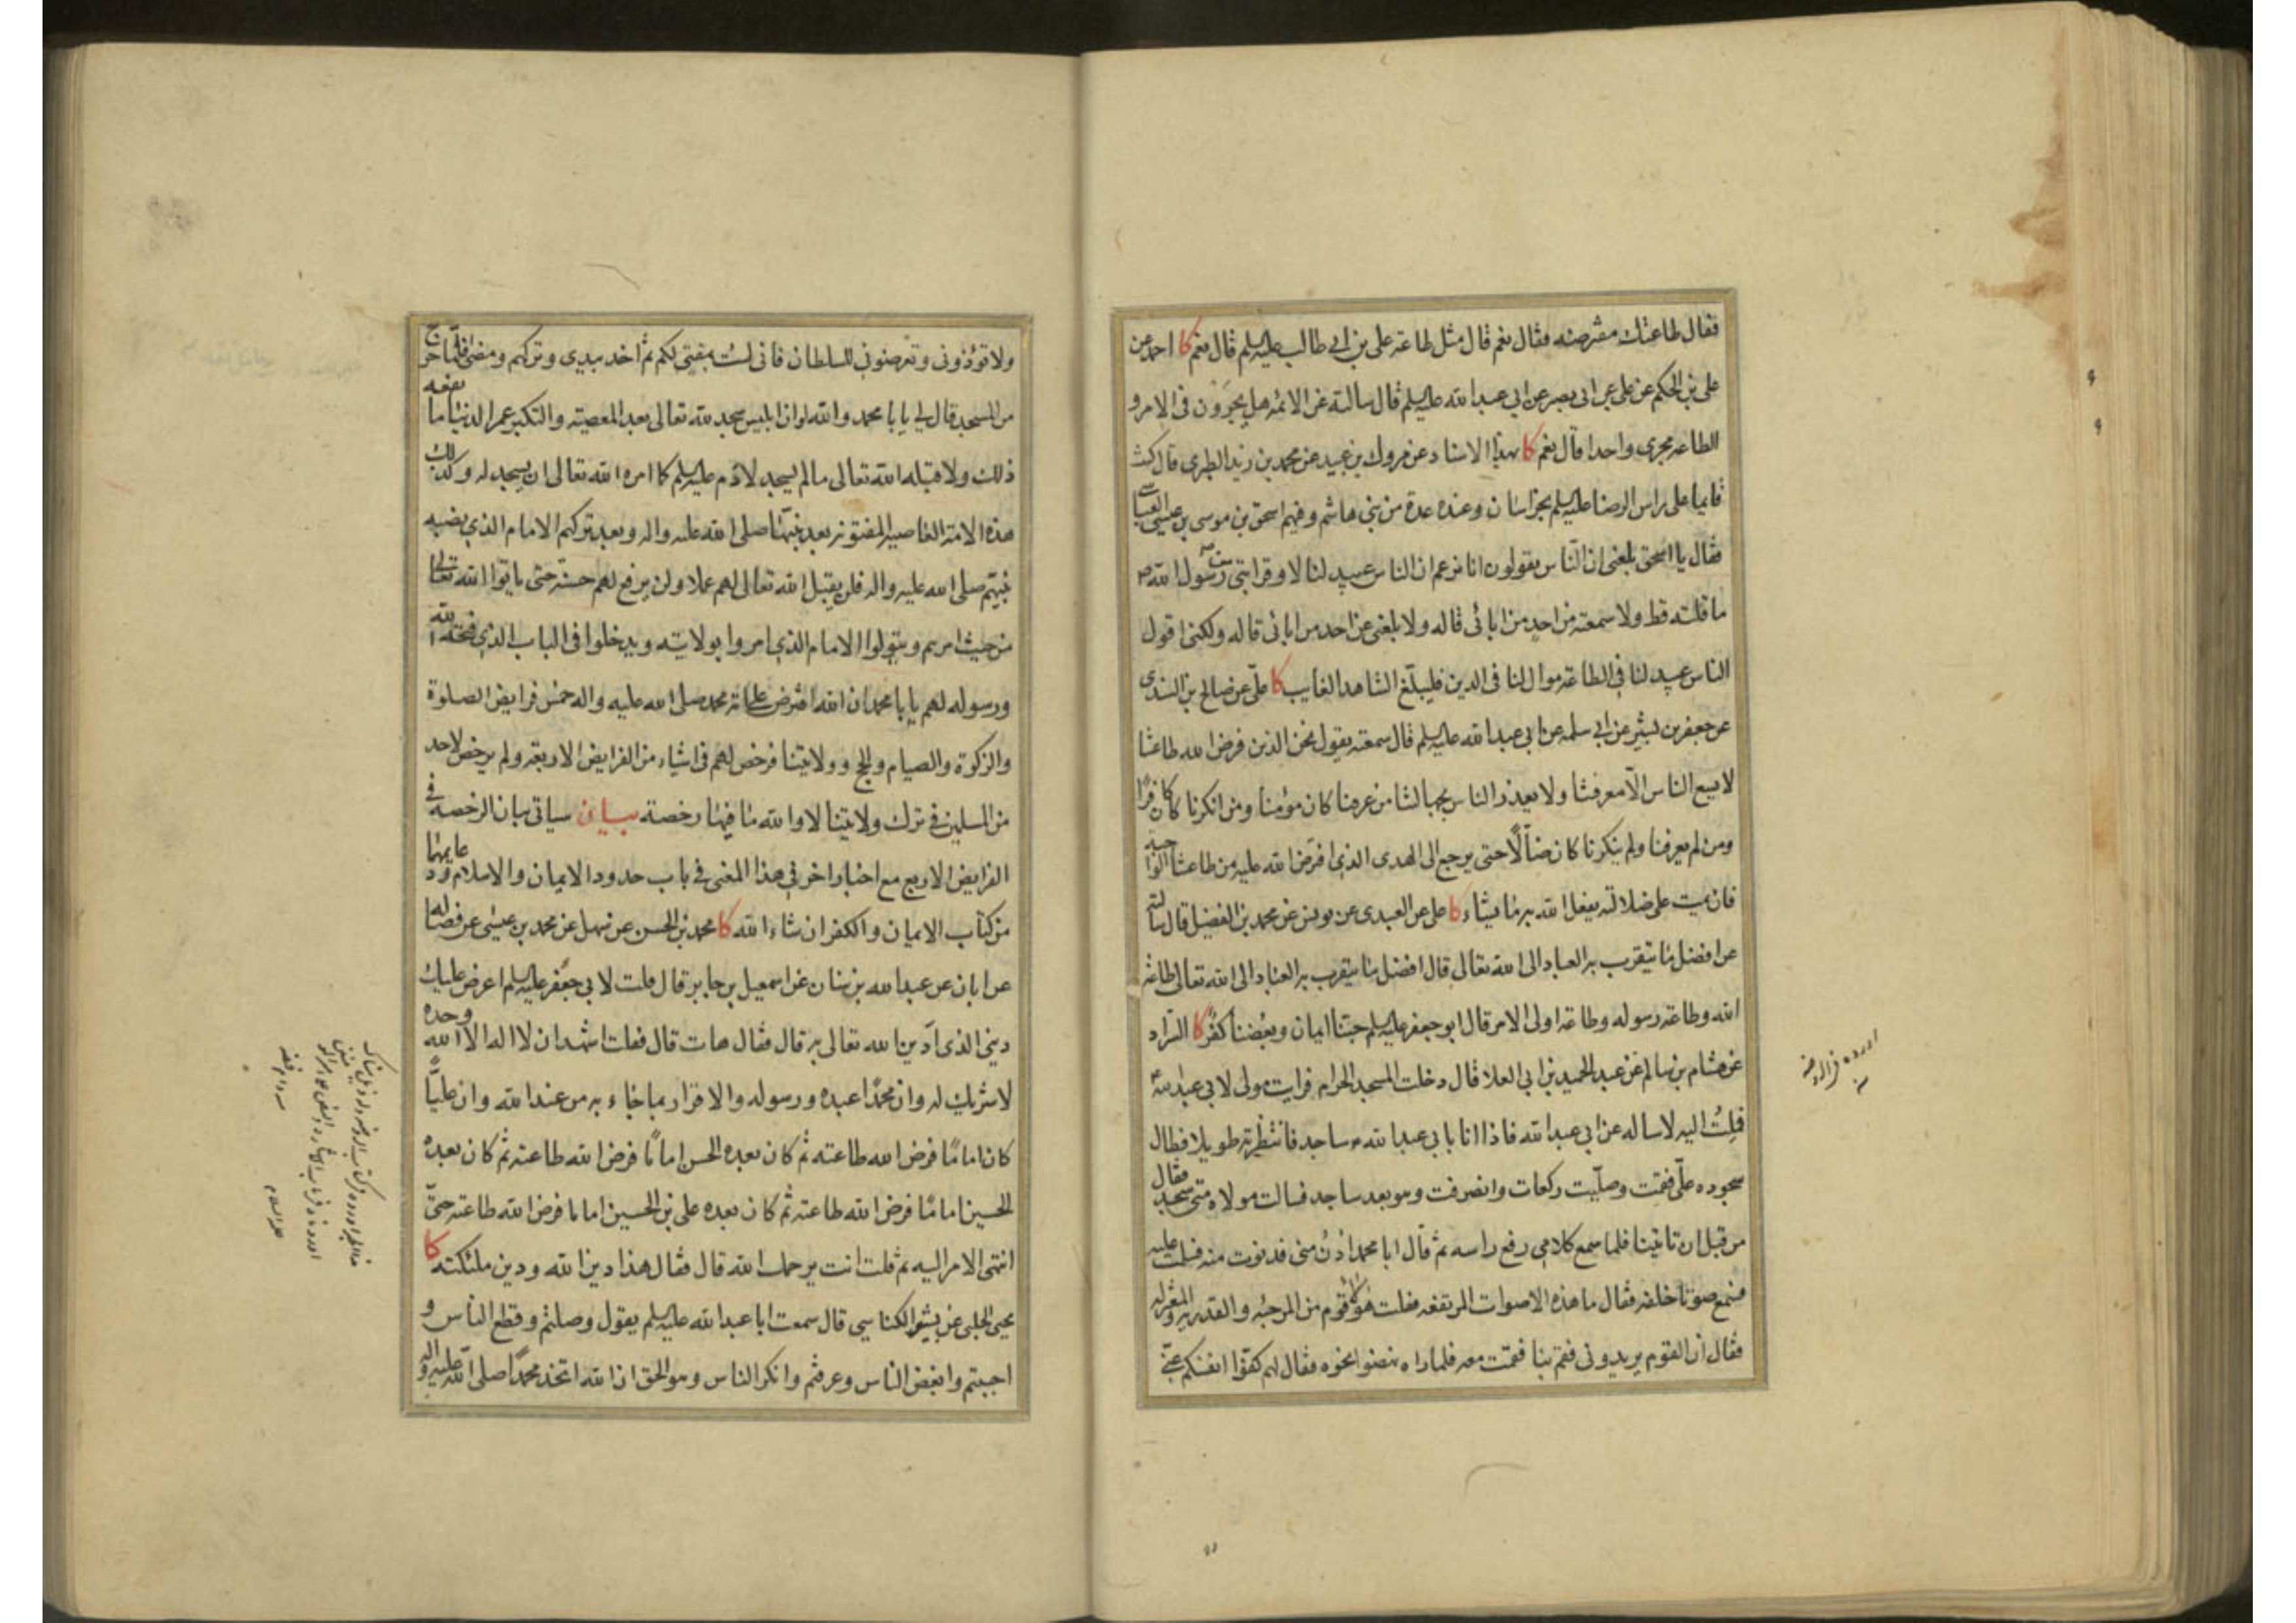 فقال طاعتك مفترضه فقال نعم قال مثل طاعة علي بن ابي طالب عليه السلم قال نعم كا احمد عن
علي بن الحكم عن علي عن ابي بصير عن ابي عبد الله عليه السلم قال سالته عن الائمة هل يجرون في الامر و
الطاعة مجرى واحدا قال نعم كا بهذا الاسناد عن فروك بن عبيد عن محمد بن زيد الطبري قال كنت
قايما على راس الرضا عليه السلم بخراسان وعنده عدة من بني هاشم وفيهم اسحق بن موسى بن عيسى العباسي
فقال يا اسحق بلغني ان الناس يقولون انا نزعم ان الناس عبيد لنا لا وقرابتي من رسول الله ص
ما قلته قط ولا سمعته من احد من ابائي قاله ولا بلغني عن احد من ابائي قاله ولكني اقول
الناس عبيد لنا في الطاعة موال لنا في الدين فليبلغ الشاهد الغايب كا علي عن صالح بن السندي
عن جعفر بن بشير عن ابي سلمه عن ابي عبد الله عليه السلم قال سمعته يقول نحن الذين فرض الله طاعتنا
لا يسع الناس الا معرفتنا ولا يعذر الناس بجهالتنا من عرفنا كان مؤمنا ومن انكرنا كان كافرا
ومن لم يعرفنا ولم ينكرنا كان ضالا حتى يرجع الى الهدى الذي افترض الله عليه من طاعتنا الواجبة
فان يمت على ضلالته يفعل الله به ما يشاء كا علي عن العبيدي عن يونس عن محمد بن الفضيل قال سالته
عن افضل ما يتقرب به العباد الى الله تعالى قال افضل ما يتقرب به العباد الى الله تعالى طاعة
الله وطاعة رسوله وطاعة اولي الامر قال ابو جعفر عليه السلم حبنا ايمان وبغضنا كفر كا السراد
عن هشام بن سالم عن عبد الحميد بن ابي العلا قال دخلت المسجد الحرام فرايت مولى لابي عبد الله ع
فملت اليه لاساله عن ابي عبد الله فاذا انا بابي عبد الله ع ساجد فانتظرته طويلا فطال
سجوده علي فقمت وصليت ركعات وانصرفت وهو بعد ساجد فسالت مولاه متى سجد فقال
من قبل ان تاتينا فلما سمع كلامي رفع راسه ثم قال ابا محمد ادن مني فدنوت منه فسلمت عليه
فسمع صوتا خلفه فقال ما هذه الاصوات المرتفعه فقلت هؤلاء قوم من المرجئه والقدريه والمعتزله
فقال ان القوم يريدوني فقم بنا فقمت معه فلما راوه نهضوا نحوه فقال لهم كفوا انفسكم عني
ولا تؤذوني وتعرضوني للسلطان فاني لست بمفتي لكم ثم اخذ بيدي وتركهم ومضى فلما خرج
من المسجد قال لي يا با محمد والله لو ان ابليس سجد لله تعالى بعد المعصية والتكبر عمر الدنيا ما نفعه
ذلك ولا قبله الله تعالى ما لم يسجد لادم عليه السلم كما امره الله تعالى ان يسجد له وكذلك
هذه الامة العاصية المفتونة بعد نبيها صلى الله عليه واله وبعد تركهم الامام الذي نصبه
نبيهم صلى الله عليه واله فلن يقبل الله تعالى لهم عملا ولن يرفع لهم حسنة حتى ياتوا الله تعالى
من حيث امرهم ويتولوا الامام الذي امروا بولايته ويدخلوا في الباب الذي فتحه الله
ورسوله لهم يا با محمد ان الله افترض على امة محمد صلى الله عليه واله خمس فرايض الصلوة
والزكوة والصيام والحج وولايتنا فرخص لهم في اشياء من الفرايض الاربعة ولم يرخص لاحد
من المسلمين في ترك ولايتنا لا والله ما فيها رخصة بيان سياتي بيان الرخصة في
الفرايض الاربع مع اخبار اخر في هذا المعنى في باب حدود الايمان والاسلام ودعايمهما
من كتاب الايمان والكفر ان شاء الله كا محمد بن الحسن عن سهل عن محمد بن عيسى عن فضاله
عن ابان عن عبد الله بن سنان عن اسمعيل بن جابر قال قلت لابي جعفر عليه السلم اعرض عليك
ديني الذي ادين الله تعالى به قال فقال هات قال فقلت اشهد ان لا اله الا الله وحده
لا شريك له وان محمدا عبده ورسوله والاقرار بما جاء به من عند الله وان عليا
كان اماما فرض الله طاعته ثم كان بعده الحسن اماما فرض الله طاعته ثم كان بعده
الحسين اماما فرض الله طاعته ثم كان بعده علي بن الحسين اماما فرض الله طاعته حتى
انتهى الامر اليه ثم قلت انت يرحمك الله قال فقال هذا دين الله ودين ملئكته كا
يحيى الحلبي عن بشير الكناسي قال سمعت ابا عبد الله عليه السلم يقول وصلتم وقطع الناس و
احببتم وابغض الناس وعرفتم وانكر الناس وهو الحق ان الله اتخذ محمدا صلى الله عليه واله